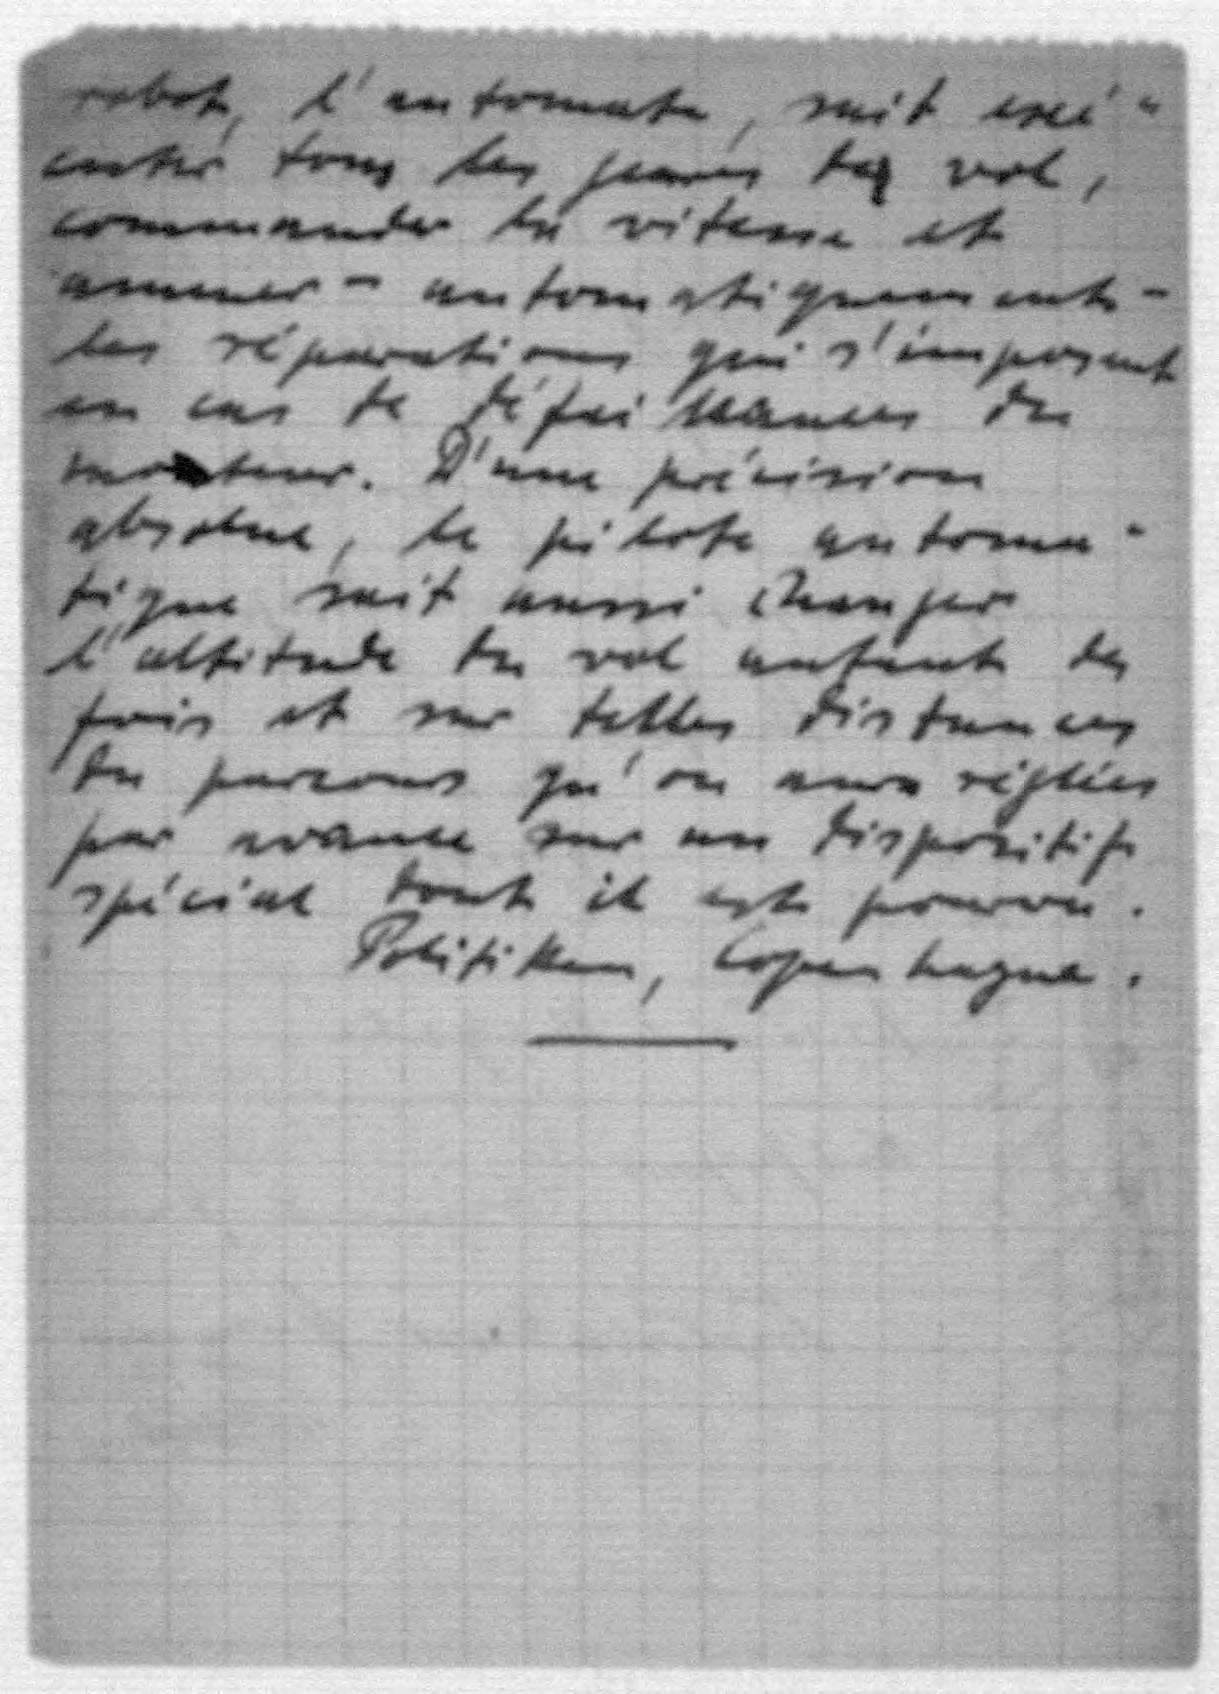 robot, l'automate, sait exé-
cuter tous les genres de vol,
commander la vitesse et
amener - automatiquement -
les réparations qui s'imposent
en cas de défaillances du
moteur. D'une précision
absolue, le pilote automa-
tique sait aussi changer
l'altitude du vol autant de
fois et sur telles distances
du parcours qu'on aura réglées
par avance sur un dispositif
spécial dont il est pourvu.
Politiken, Copenhague.